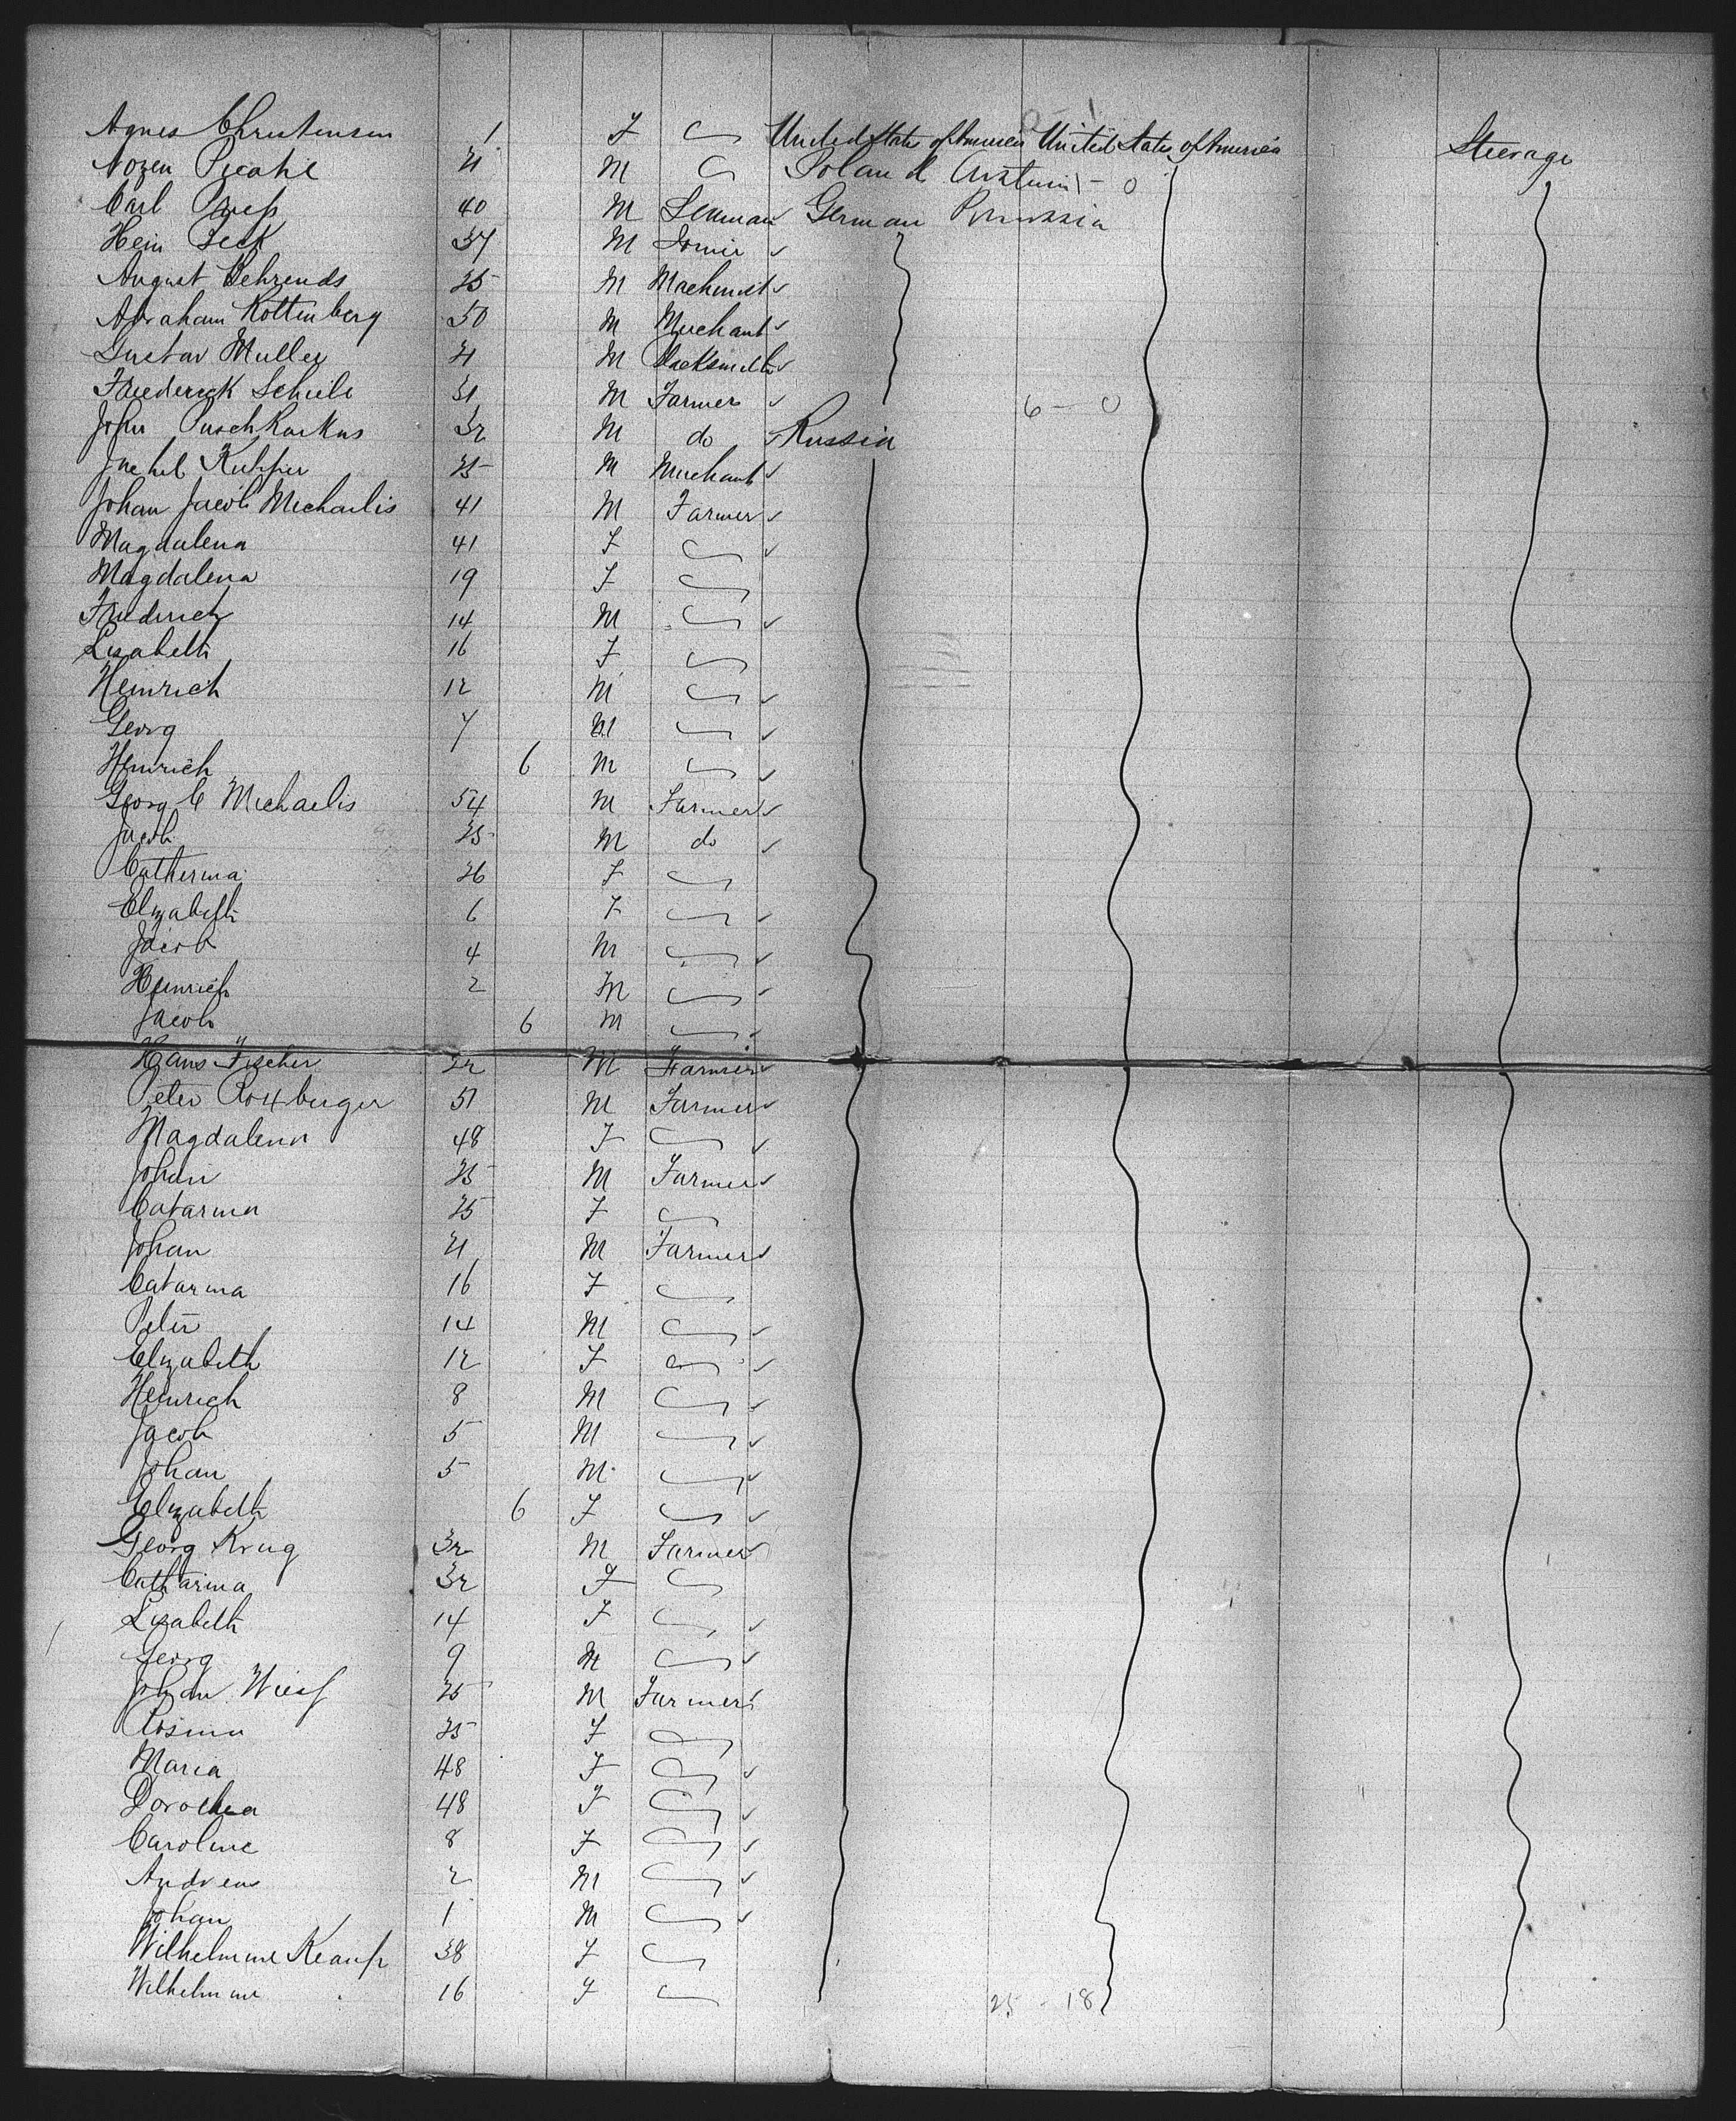 0 - 1
Agnes Christensen 1 F United States of America United States of America Steerage
21 M Poland Austria 1 - 0
Carl 40 M Seaman German Prussia
Hein Beck 37 M
August Behrends 25 M Machinist
Abraham Rottenberg 50 M Merchant
Gustav Muller 21 M Blacksmith
Friederick Scheibe 31 M Farmer 6 - 0
John 32 M do Russia
25 M Merchant
Johan Jacob Michaelis 41 M Farmer
Magdalena 41 F
Magdalena 19 F
Friederich 14 M
Lisabeth 16 F
Heinrich 12 M
Georg 7 M
Heinrich 6 M
Georg C Michaelis 54 M Farmer
Jacob 25 M do
Catherina 26 F
Elizabeth 6 F
Jacob 4 M
Heinrich 2 M
Jacob 6 M
Hans Fischer 22 M Farmer
Peter 51 M Farmer
Magdalena 48 F
Johan 25 M Farmer
Catarina 25 F
Johan 21 M Farmer
Catarina 16 F
Peter 14 M
Elizabeth 12 F
Heinrich 8 M
Jacob 5 M
Johan 5 M
Elizabeth 6 F
Georg Krug 32 M Farmer
Catharina 32 F
Lisabeth 14 F
Georg 9 M
Johan 25 M Farmer
Rosina 25 F
Maria 48 F
Dorothea 48 F
Caroline 8 F
Andreas 2 M
Johan 1 M
Wilhelmine 38 F
Wilhelmine 16 F 25 - 18